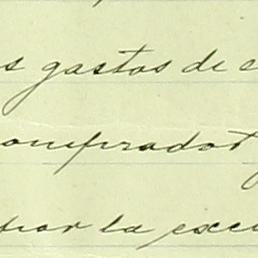 s gastos de c
omprador y
par la escri